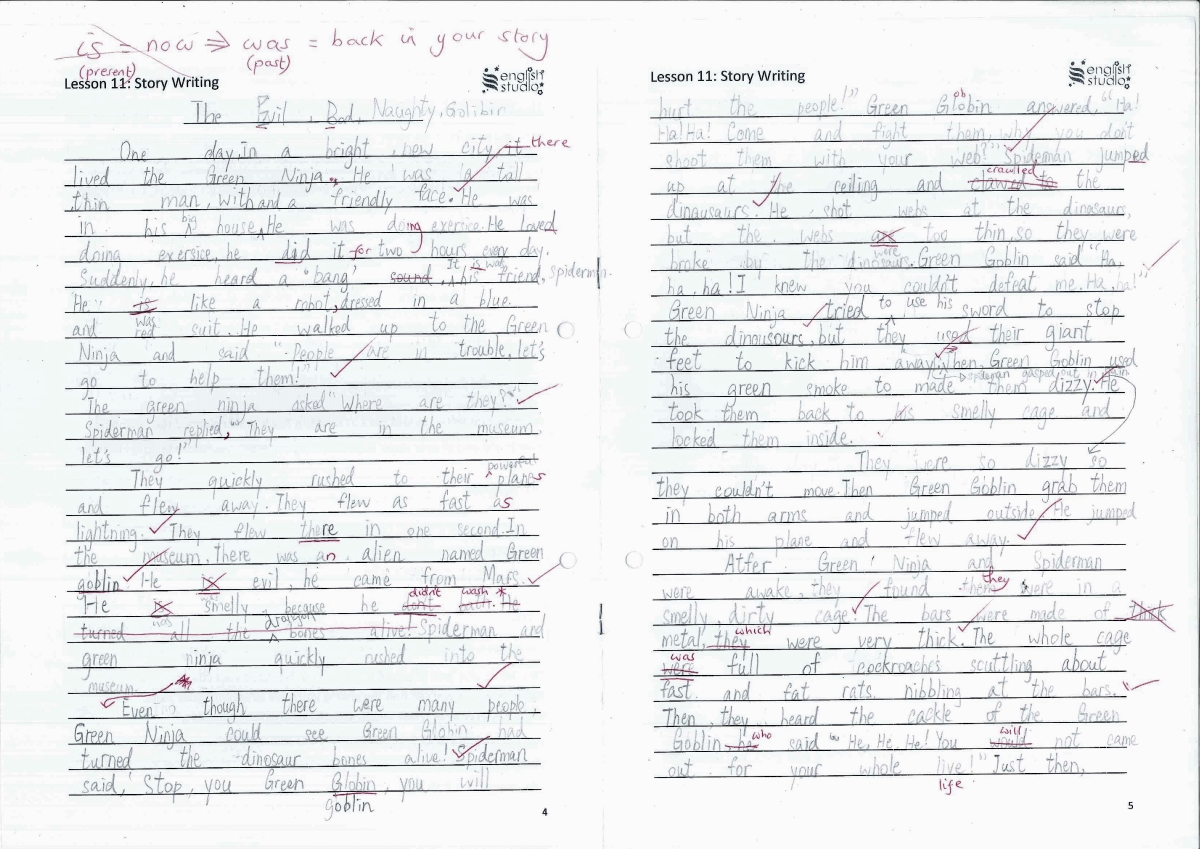 is = now ⇒ was = back in your story
(present) (past)
Lesson 11: Story Writing
english studio
The Evil, Bad, Naughty, Golibin
One day, in a bright, new city at there
lived the Green Ninja. He was a tall
thin man, with and a friendly face. He was
in his big house. He was doing exercice. He loved
doing exersice, he did it for two hours every day.
Suddenly, he heard a "bang" sound. It was his friend, spiderman.
He is like a robot, dressed in a blue.
and was red suit. He walked up to the Green
Ninja and said "People are in trouble, let's
go to help them!"
The green ninja asked "Where are they?"
Spiderman replied, "They are in the museum
let's go!"
They quickly rushed to their powerful planes
and flew away. They flew as fast as
lightning. They flew there in one second. In
the museum, there was an alien named Green
goblin. He is evil, he came from Mars.
He is was smelly because he don't didn't bath. wash * He
turned all the dragon bones alive! Spiderman and
green ninja quickly rushed into the
museum.
Even though there were many people,
Green Ninja could see Green Globin had
turned the dinosaur bones alive! Spiderman
said, "Stop, you Green Globin, you will
goblin
4
Lesson 11: Story Writing
english studio
hurt the people!" Green Globin ob answered, "Ha!
Ha! Ha! Come and fight them, why you don't
shoot them with your web?" Spideman jumped
up at the ceiling and clawed to crawled the
dinausaurs. He shot webs at the dinosaurs,
but the webs are were too thin, so they were
broke by the dinosaurs. Green Goblin said "Ha,
ha, ha! I knew you couldn't defeat me. Ha, ha!"
Green Ninja tried to use his sword to stop
the dinousours, but they used their giant
feet to kick him away. Then, Green Goblin used
spideman gasped out in pain
his green smoke to made them dizzy. He
took them back to his smelly cage and
locked them inside.
They were so dizzy so
they couldn't move. Then Green Goblin grab them
in both arms and jumped outside. He jumped
on his plane and flew away.
Atfer Green Ninja and Spiderman
were awake, they found them they were in a
smelly, dirty cage. The bars were made of think
metal, they which were very thick. The whole cage
was were full of cockroaches scuttling about
fast. and fat rats nibbling at the bars.
Then, they heard the cackle of the Green
Goblin he who said "He, He, He! You would will not came
out for your whole live!" Just then,
life
5